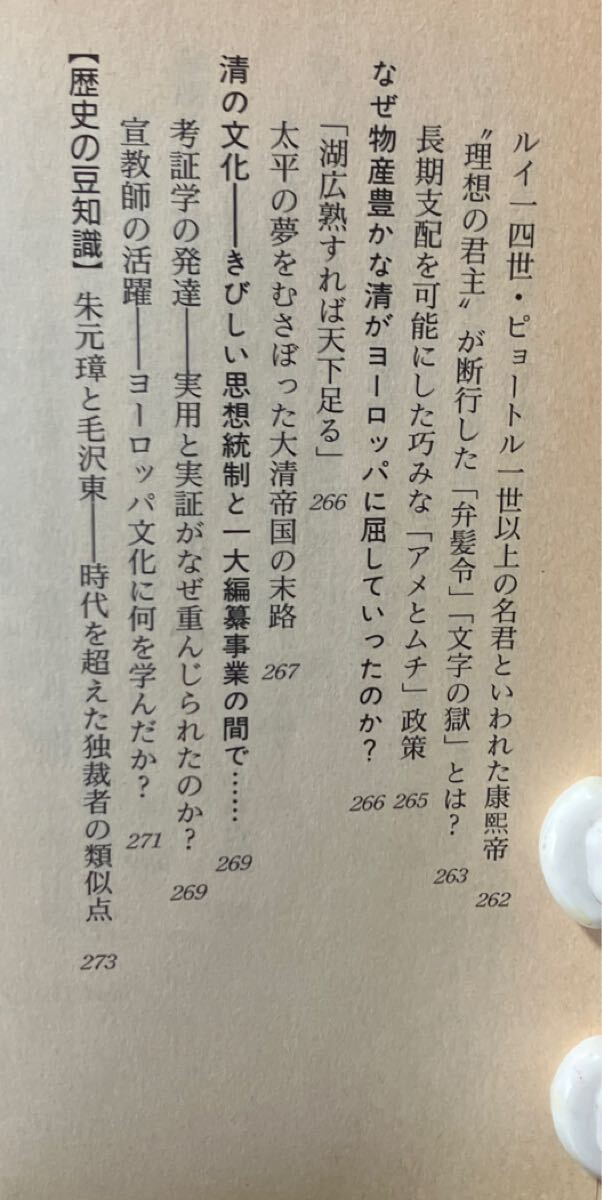 ルイ一四世・ピョートル一世以上の名君といわれた康熙帝 262
〝理想の君主〟が断行した「弁髪令」「文字の獄」とは? 263
長期支配を可能にした巧みな「アメとムチ」政策 265
なぜ物産豊かな清がヨーロッパに屈していったのか? 266
「湖広熟すれば天下足る」 266
太平の夢をむさぼった大清帝国の末路 267
清の文化——きびしい思想統制と一大編纂事業の間で…… 269
考証学の発達——実用と実証がなぜ重んじられたのか? 269
宣教師の活躍——ヨーロッパ文化に何を学んだか? 271
【歴史の豆知識】 朱元璋と毛沢東——時代を超えた独裁者の類似点 273